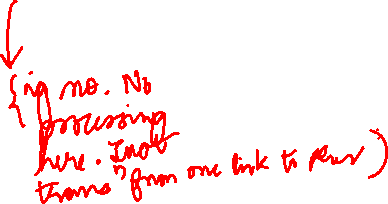 {ig no. No
processing
here. Just
trans" from one link to